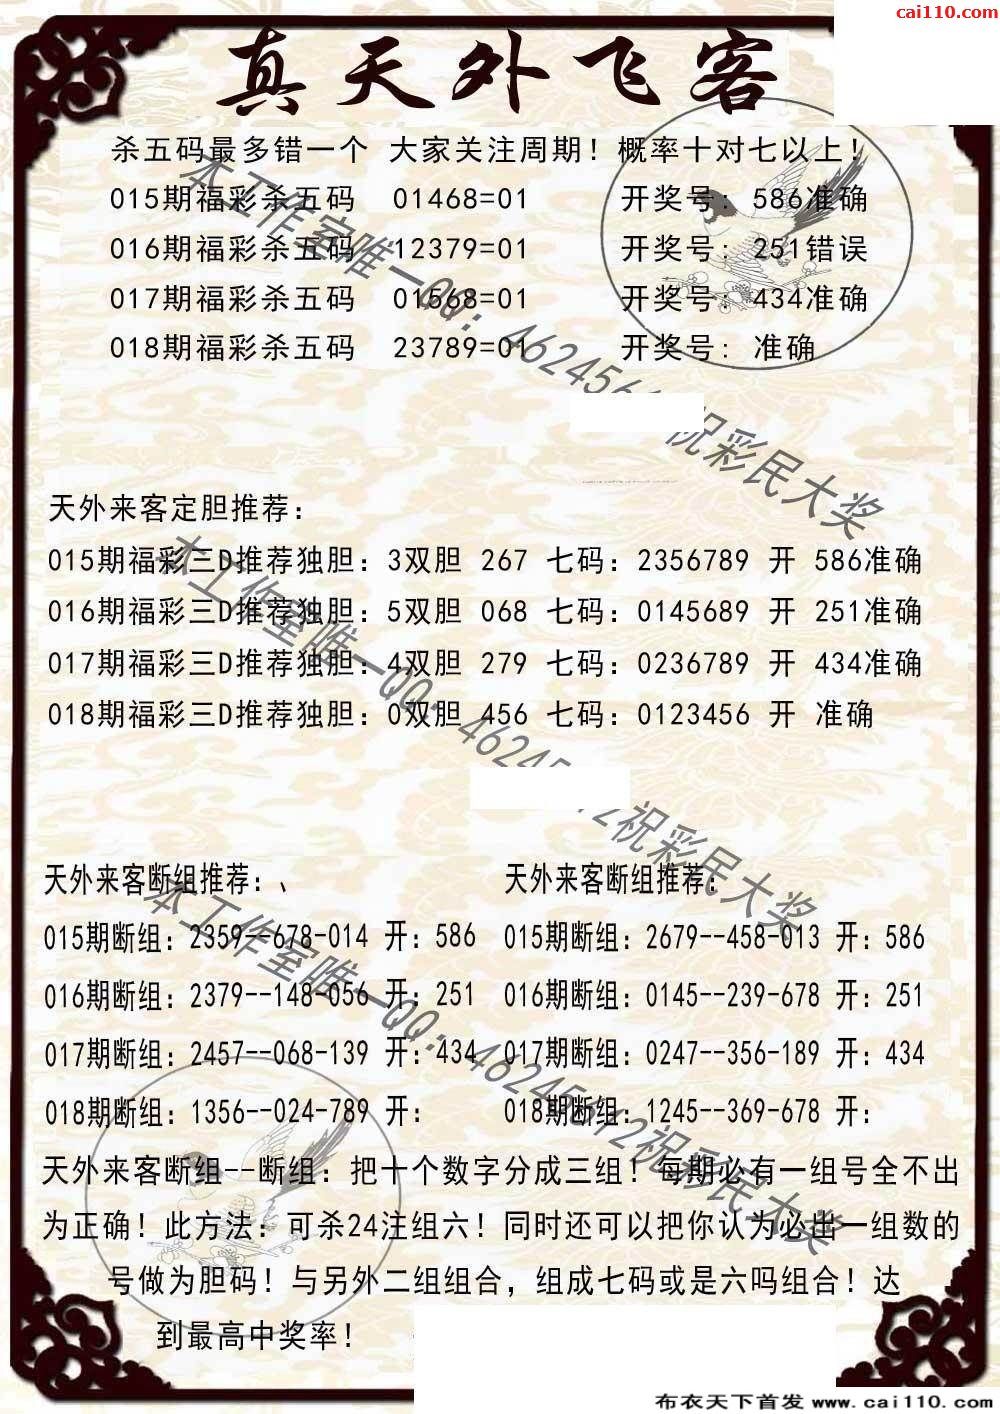 cai110.com
真天外飞客
杀五码最多错一个 大家关注周期！概率十对七以上！
015期福彩杀五码 01468=01 开奖号：586准确
016期福彩杀五码 12379=01 开奖号：251错误
017期福彩杀五码 01568=01 开奖号：434准确
018期福彩杀五码 23789=01 开奖号：准确
本工作室唯一QQ：46245612祝彩民大奖
天外来客定胆推荐：
015期福彩三D推荐独胆：3双胆 267 七码：2356789 开 586准确
016期福彩三D推荐独胆：5双胆 068 七码：0145689 开 251准确
017期福彩三D推荐独胆：4双胆 279 七码：0236789 开 434准确
018期福彩三D推荐独胆：0双胆 456 七码：0123456 开 准确
本工作室唯一QQ：46245612祝彩民大奖
天外来客断组推荐：、 天外来客断组推荐：
015期断组：2359--678-014 开：586 015期断组：2679--458-013 开：586
016期断组：2379--148-056 开：251 016期断组：0145--239-678 开：251
017期断组：2457--068-139 开：434 017期断组：0247--356-189 开：434
018期断组：1356--024-789 开： 018期断组：1245--369-678 开：
本工作室唯一QQ：46245612祝彩民大奖
天外来客断组--断组：把十个数字分成三组！每期必有一组号全不出
为正确！此方法：可杀24注组六！同时还可以把你认为必出一组数的
号做为胆码！与另外二组组合，组成七码或是六吗组合！达
到最高中奖率！
布衣天下首发 www.cai110.com